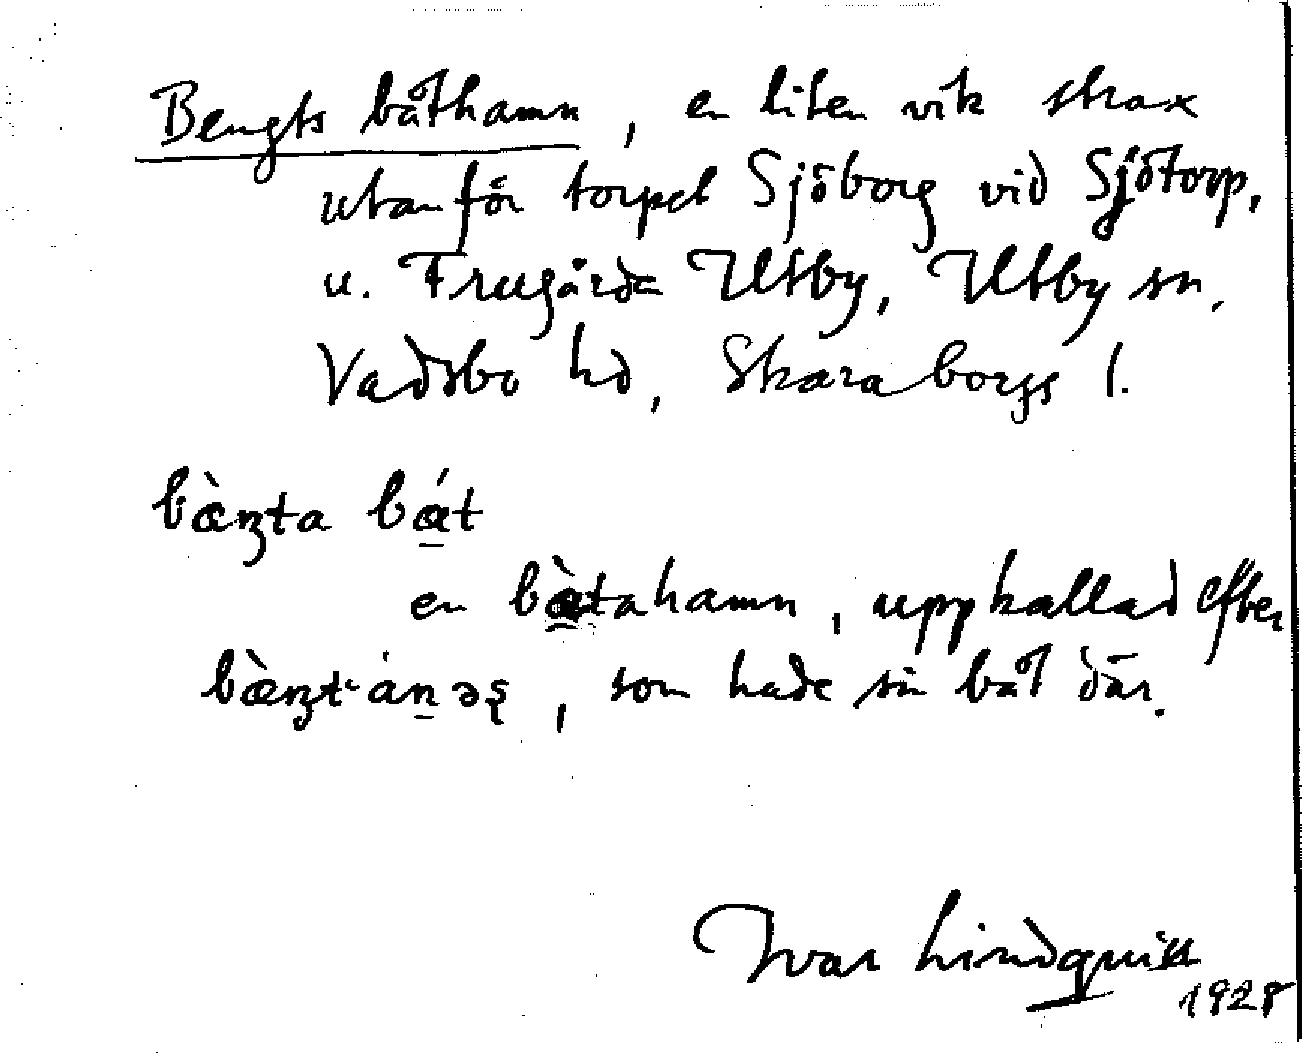 Bengts båthamn, en liten vik strax
utanför torpet Sjöborg vid Sjötorp,
u. Frugårda Utby, Utby sn,
Vadsbo hd, Skaraborgs l.
bæ̀ŋta bá̱t
en bà̱tahamn, uppkallad efter
bæ̀ŋt-áṉəʂ, som hade sin båt där.
Ivar Lindquist
1928